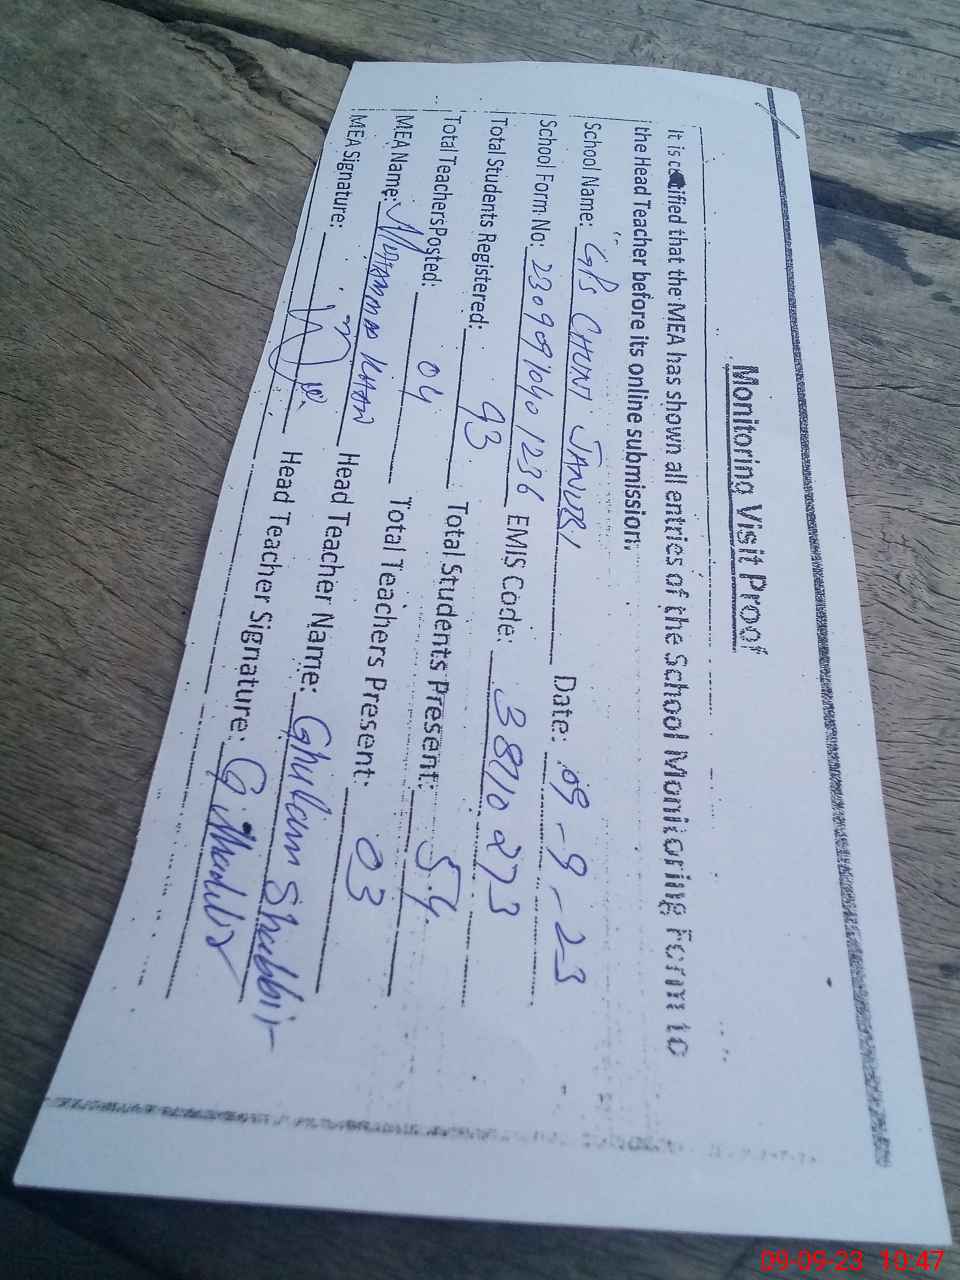 Monitoring Visit Proof
It is certified that the MEA has shown all entries of the School Monitoring Form to
the Head Teacher before its online submission.
School Name: GPS CHUNI JANUBI Date: 09-9-23
School Form No: 23090910401236 EMIS Code: 38710273
Total Students Registered: 93 Total Students Present: 54
Total Teachers Posted: 04 Total Teachers Present: 03
MEA Name: MUHAMMAD KHAN Head Teacher Name: Ghulam Shabbir
MEA Signature: Head Teacher Signature:
09-09-23 10:47